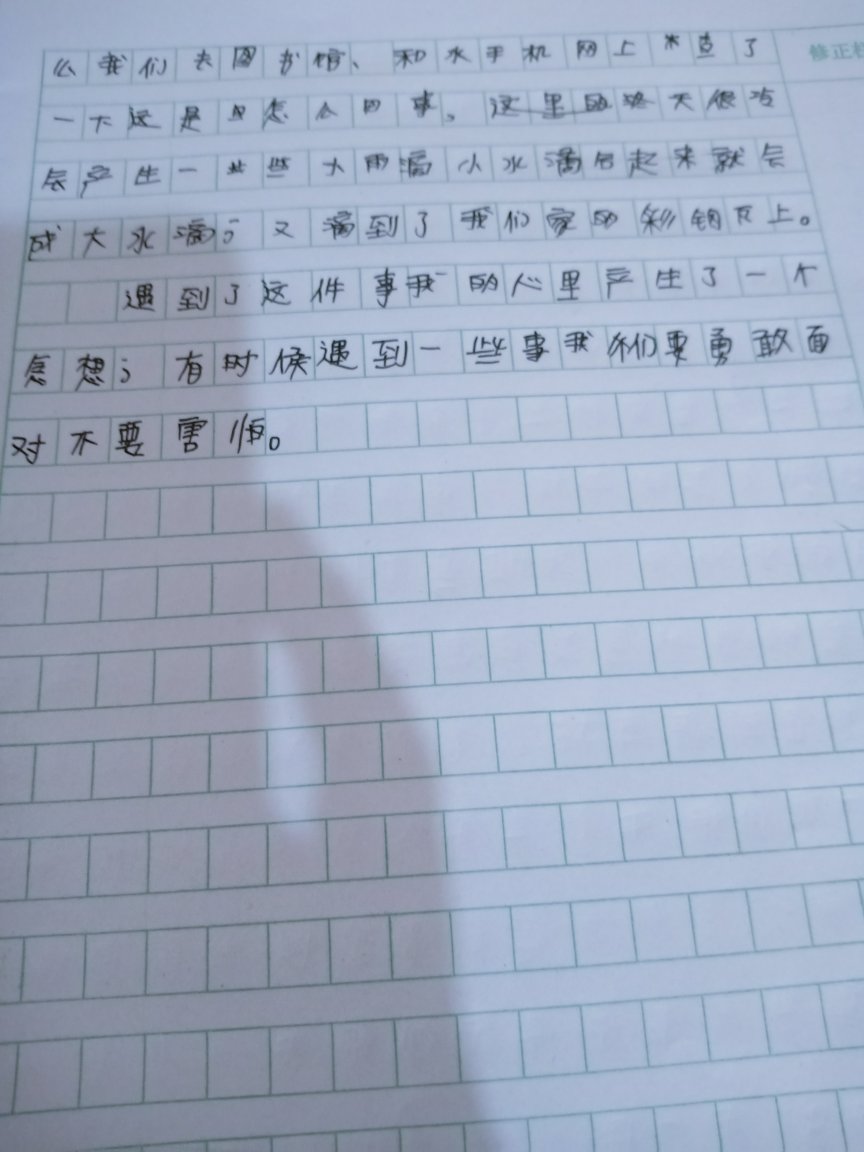 么我们去图书馆、和水手机网上来查了 修正栏
一下这是怎么回事。这里的冬天很冷
会产生一些些大雨滴小水滴合起来就会
成大水滴,又滴到了我们家的彩钢瓦上。
遇到了这件事我的心里产生了一个
感想,有时候遇到一些事我们要勇敢面
对不要害怕。